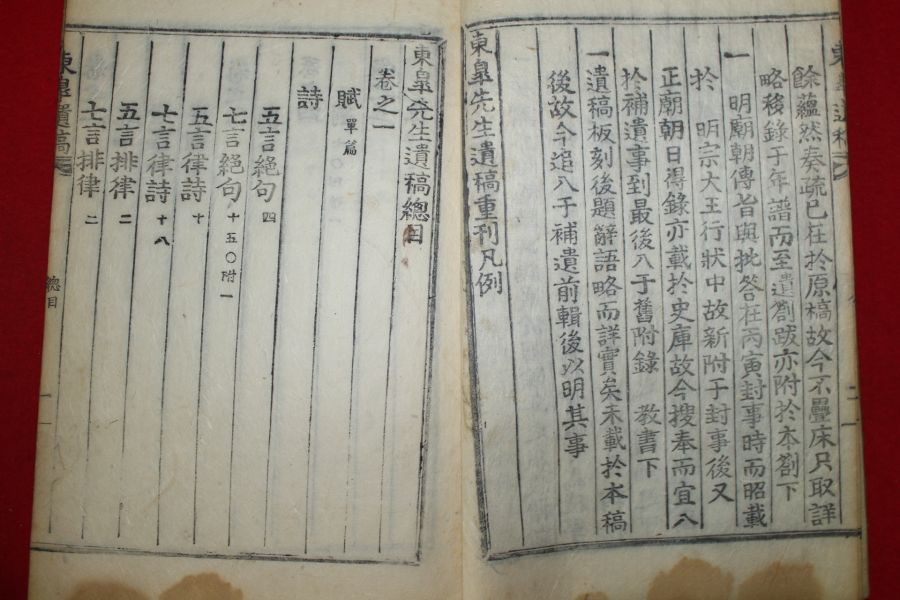 餘蘊然奏疏已在於原稿故今不疊床只取詳
略移錄于年譜而至遺劄跋亦附於本劄下
一 明廟朝傳旨與批答在丙寅封事時而昭載
於 明宗大王行狀中故新附于封事後又
正廟朝日得錄亦載於史庫故今搜奉而宜入
於補遺事到最後入于舊附錄 敎書下
一遺稿板刻後題辭語略而詳實矣未載於本稿
後故今追入于補遺前輯後以明其事
東皐先生遺稿重刊凡例
東皐先生遺稿總目
卷之一
賦 單篇
詩
五言絕句 四
七言絕句 十五〇附一
五言律詩 十
七言律詩 十八
五言排律 二
七言排律 二
東皐遺稿
總目
一